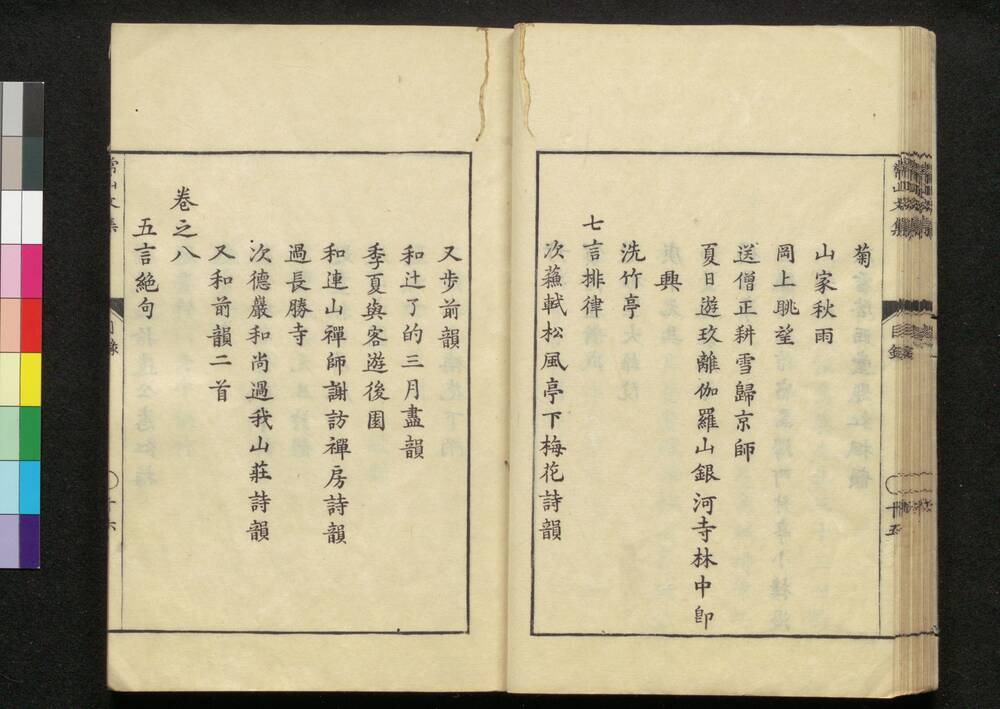 菊
山家秋雨
岡上眺望
送僧正耕雪歸京師
夏日遊玖離伽羅山銀河寺林中卽
興
洗竹亭
七言排律
次蘓軾松風亭下梅花詩韻
常山文集
目錄
十五
又步前韻
和辻了的三月盡韻
季夏與客遊後園
和連山禪師謝訪禪房詩韻
過長勝寺
次德巖和尚過我山莊詩韻
又和前韻二首
卷之八
五言絕句
常山文集
目錄
十六